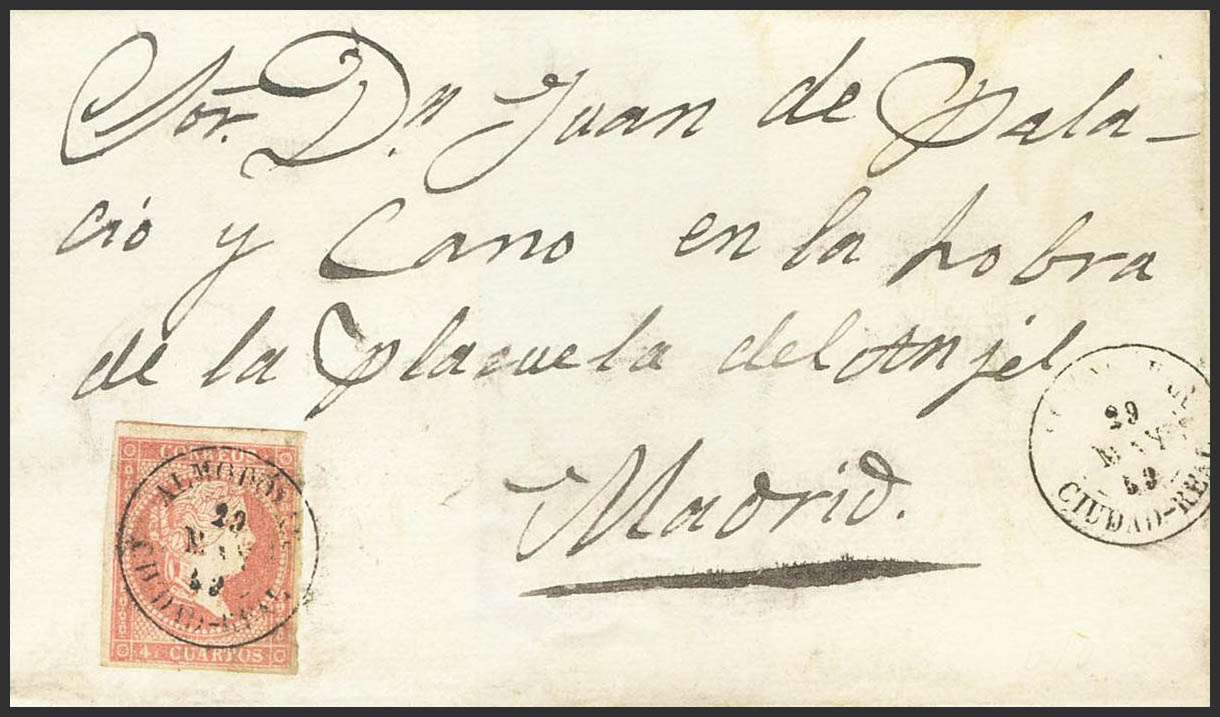 Sor. Dn. Juan de Pala-
cio y Cano en la hobra
de la Plazuela del Anjel
Madrid.
CORREOS
4 CUARTOS
ALMODOVAR
29
MAY
59
CIUDAD-REAL
29
MAY
59
CIUDAD-REAL